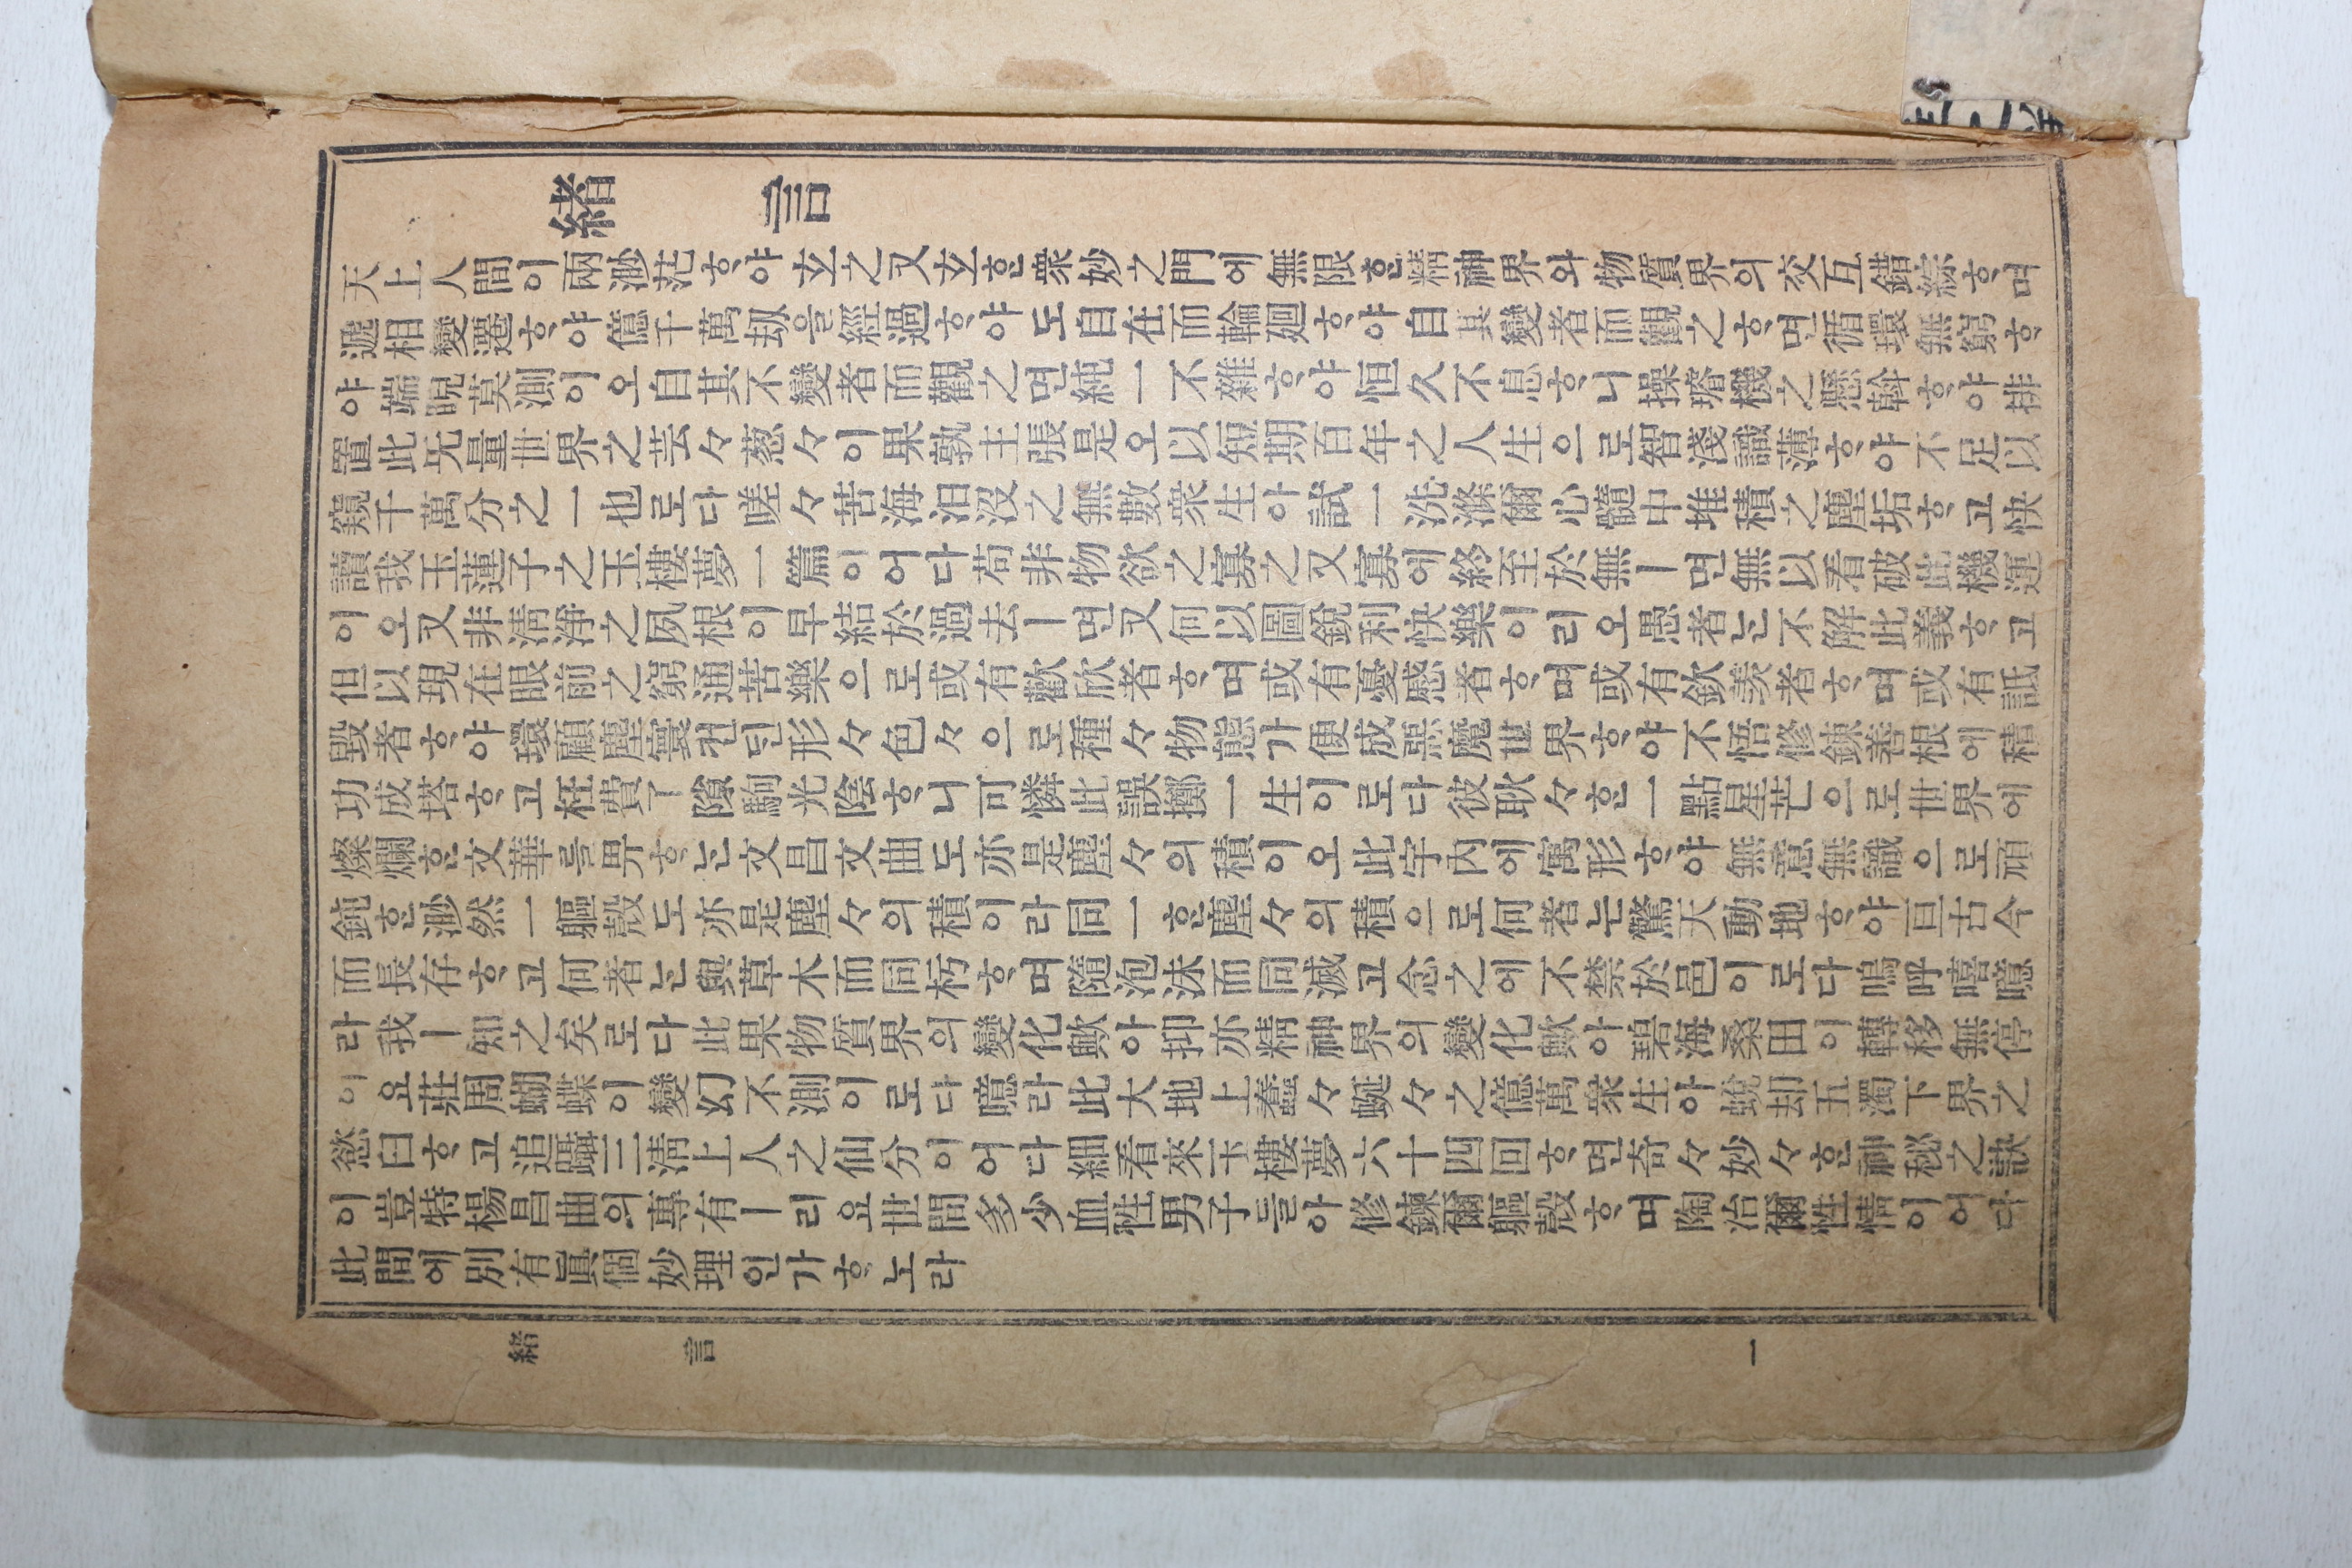 緖言
天上人間이兩渺茫ᄒᆞ야玄之又玄ᄒᆞᆫ衆妙之門에無限ᄒᆞᆫ精神界와物質界의交互錯綜ᄒᆞ며
遞相變遷ᄒᆞ야億千萬劫을經過ᄒᆞ야도自在而輪廻ᄒᆞ야自其變者而觀之ᄒᆞ면循環無窮ᄒᆞ
야端睨莫測이오自其不變者而觀之면純一不雜ᄒᆞ야恒久不息ᄒᆞ니操璿機之懸斡ᄒᆞ야排
置此旡量世界之芸々葱々이果孰主張是오以短期百年之人生으로智淺識薄ᄒᆞ야不足以
窺千萬分之一也로다嗟々苦海汨沒之無數衆生아試一洗滌爾心髓中堆積之塵垢ᄒᆞ고快
讀我玉蓮子之玉樓夢一篇이어다苟非物欲之寡之又寡에終至於無ㅣ면無以看破此機運
이오又非淸淨之夙根이早結於過去ㅣ면又何以圖銳利快樂이리오愚者ᄂᆞᆫ不解此義ᄒᆞ고
但以現在眼前之窮通苦樂으로或有歡欣者ᄒᆞ며或有憂慼者ᄒᆞ며或有欽羡者ᄒᆞ며或有詆
毁者ᄒᆞ야環顧塵寰컨ᄃᆡᆫ形々色々으로種々物態가便成惡魔世界ᄒᆞ야不悟修鍊善根에積
功成塔ᄒᆞ고枉費了隙駒光陰ᄒᆞ니可憐此誤擲一生이로다彼耿々ᄒᆞᆫ一點星芒으로世界에
燦爛ᄒᆞᆫ文華를畀ᄒᆞᄂᆞᆫ文昌文曲도亦是塵々의積이오此宇內에寓形ᄒᆞ야無意無識으로頑
鈍ᄒᆞᆫ渺然一軀殼도亦是塵々의積이라同一ᄒᆞᆫ塵々의積으로何者ᄂᆞᆫ驚天動地ᄒᆞ야亘古今
而長存ᄒᆞ고何者ᄂᆞᆫ與草木而同朽ᄒᆞ며隨泡沫而同滅고念之에不禁於邑이로다嗚呼嘻噫
라我ㅣ知之矣로다此果物質界의變化歟아抑亦精神界의變化歟아碧海桑田이轉移無停
이요莊周蝴蝶이變幻不測이로다噫라此大地上蠢々蜒々之億萬衆生아蛻却五濁下界之
慾臼ᄒᆞ고追躡三淸上人之仙分이어다細看來玉樓夢六十四回ᄒᆞ면奇々妙々ᄒᆞᆫ神秘之訣
이豈特楊昌曲의專有ㅣ리요世間多少血性男子들아修鍊爾軀殼ᄒᆞ며陶冶爾性情이어다
此間에別有眞個妙理인가ᄒᆞ노라
緖言 一